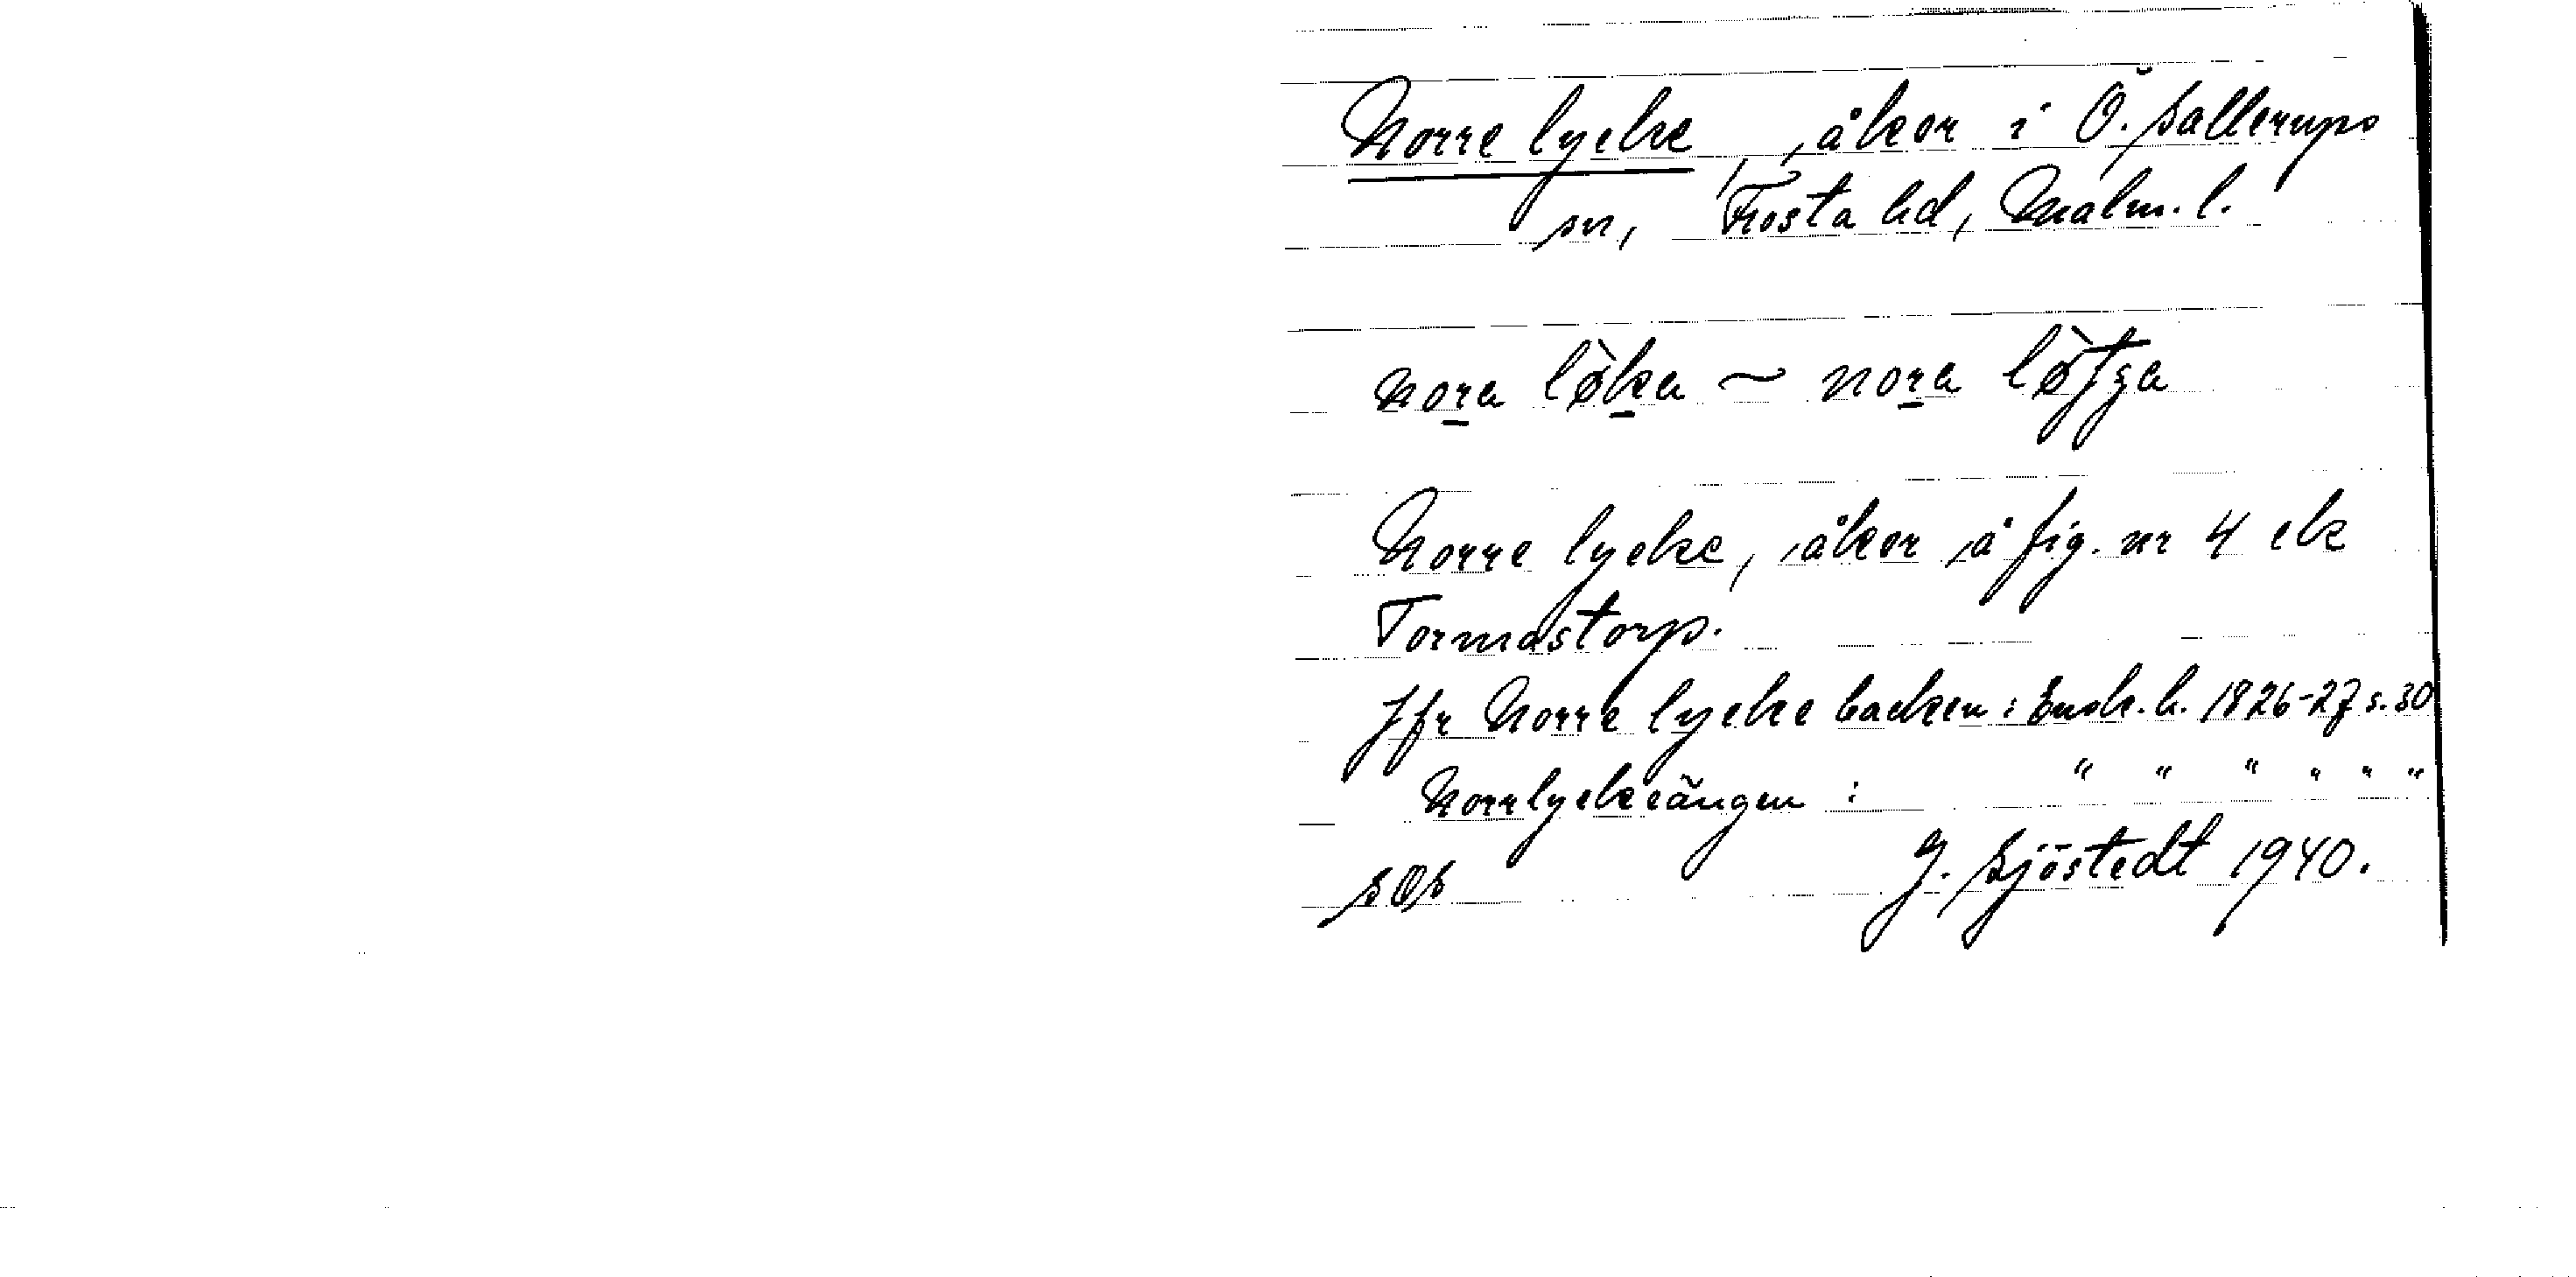 Norre lycke, åker i Ö. Sallerups
sn, Frosta hd, Malm. l.
nora lø̀ka ~ nora
Norre lycke, åker å fig. nr 4 ek
Tormastorp.
Jfr Norre lycke backen: Ensk. h. 1826-27 s. 30
Norrlyckeängen : " " " " " "
G. Sjöstedt 1940.